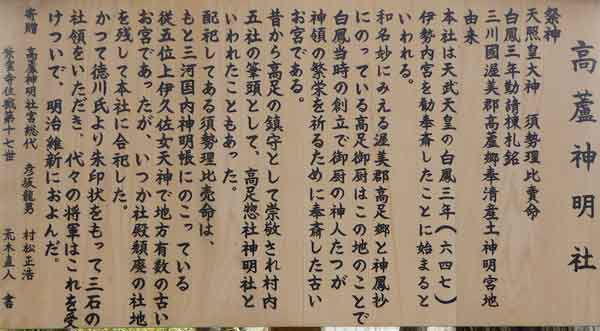 高蘆神明社
祭神
天照皇大神　須勢理比賣命
白鳳三年勧請棟札銘
三川國渥美郡高蘆郷奉清産土神明宮地
由来
本社は天武天皇の白鳳三年（六四七）
伊勢内宮を勧奉斎したことに始まると
いわれる。
和名妙にみえる渥美郡高足郷と神鳳抄
にのっている高足御厨はこの地のことで
白鳳当時の創立で御厨の神人たつが
神領の繁栄を祈るために奉斎した古い
お宮である。
昔から高足の鎮守として崇敬され村内
五社の筆頭として、高足惣社神明社と
いわれたこともあった。
配祀してある須勢理比売命は、
もと三河国内神明帳にのこっている
従五位上伊久佐女天神で地方有数の古い
お宮であったが、いつか社殿頽廃の社地
を残して本社に合祀した。
かつて徳川氏より朱印状をもって三石の
社領をいただき、代々の将軍はこれを受
けついで、明治維新におよんだ。
寄贈　高蘆神明社宮総代　彦坂龍男　村松正浩
住職第十七世　荒木直人　書